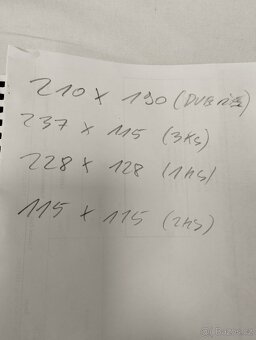 210 x 190 (DVEŘE)
237 x 115 (3Ks)
228 x 128 (1Ks)
115 x 115 (2Ks)